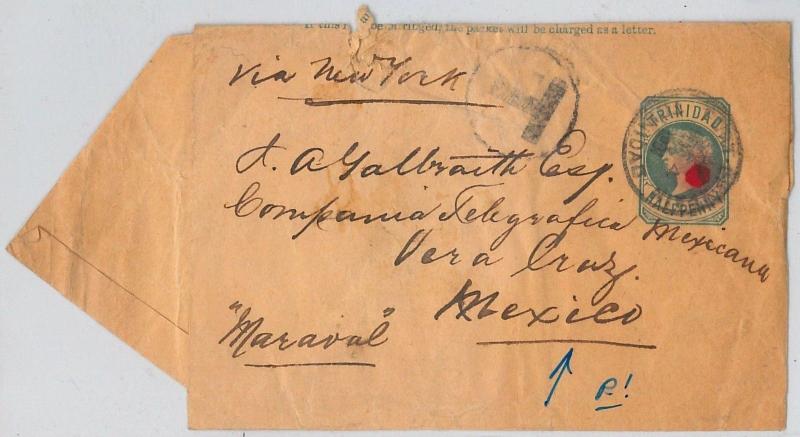 If this be the packet will be charged as a letter.
Via New York
T
TRINIDAD
HALFPENNY
J. A Galbraith Esq.
Compania Telegrafica Mexicana
Vera Cruz.
Mexico
"Maraval"
P!